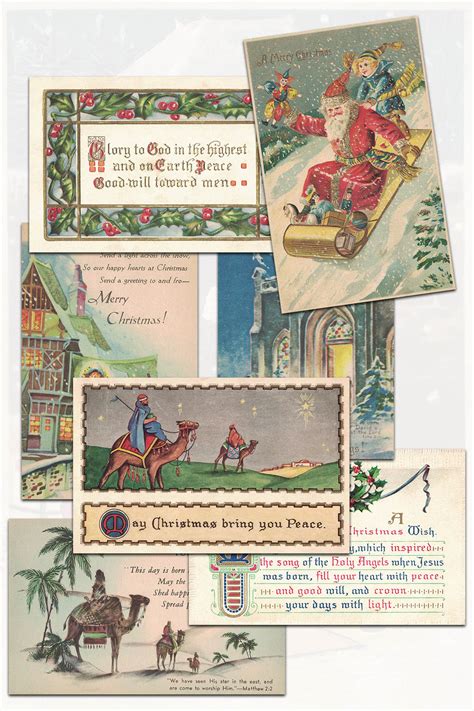 A Merry Christmas
Glory to God in the highest
and on Earth Peace
Good-will toward men
Send a light across the snow,
So our happy hearts at Christmas
Send a greeting to and fro—
Merry
Christmas!
May Christmas bring you Peace.
A
Christmas Wish.
y, which inspired
the song of the Holy Angels when Jesus
was born, fill your heart with peace
and good will, and crown
your days with light.
This day is born
May the
Shed happ
Spread
"We have seen His star in the east, and
are come to worship Him."—Matthew 2:2